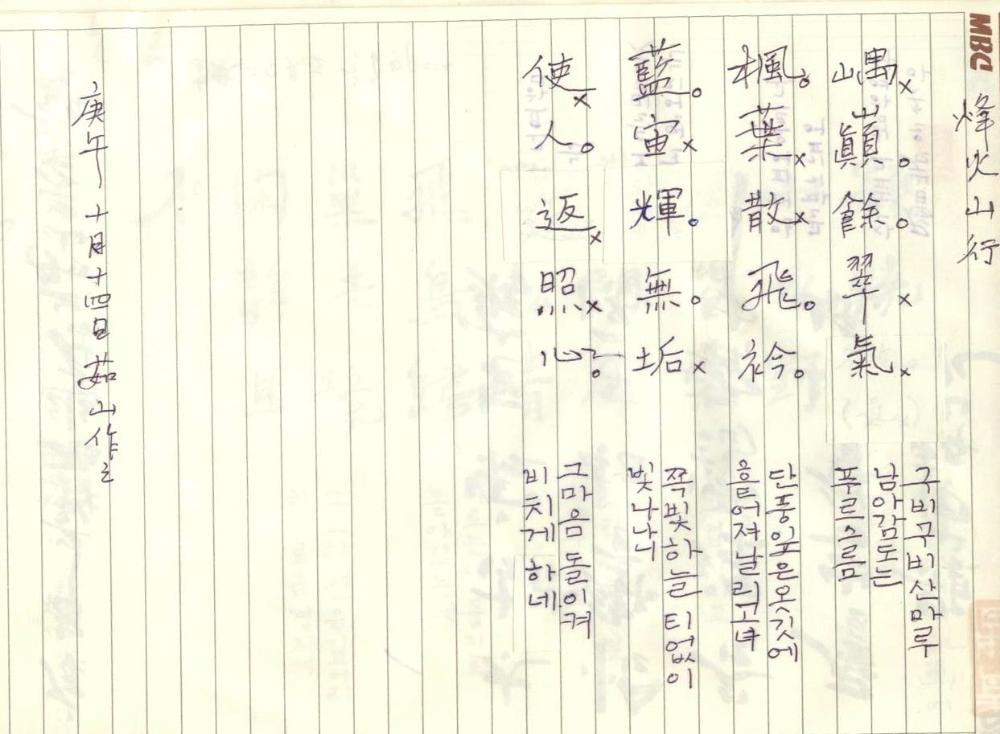 MBC
烽火山行
嵎巓餘翠氣
구비구비산마루
남아감도는
푸르스름
楓葉散飛衿
단풍잎은옷깃에
흩어져날리고녀
藍宙輝無垢
쪽빛하늘 티없이
빛나나니
使人返照心
그마음 돌이켜
비치게 하네
庚午 十月十四日 茹山作